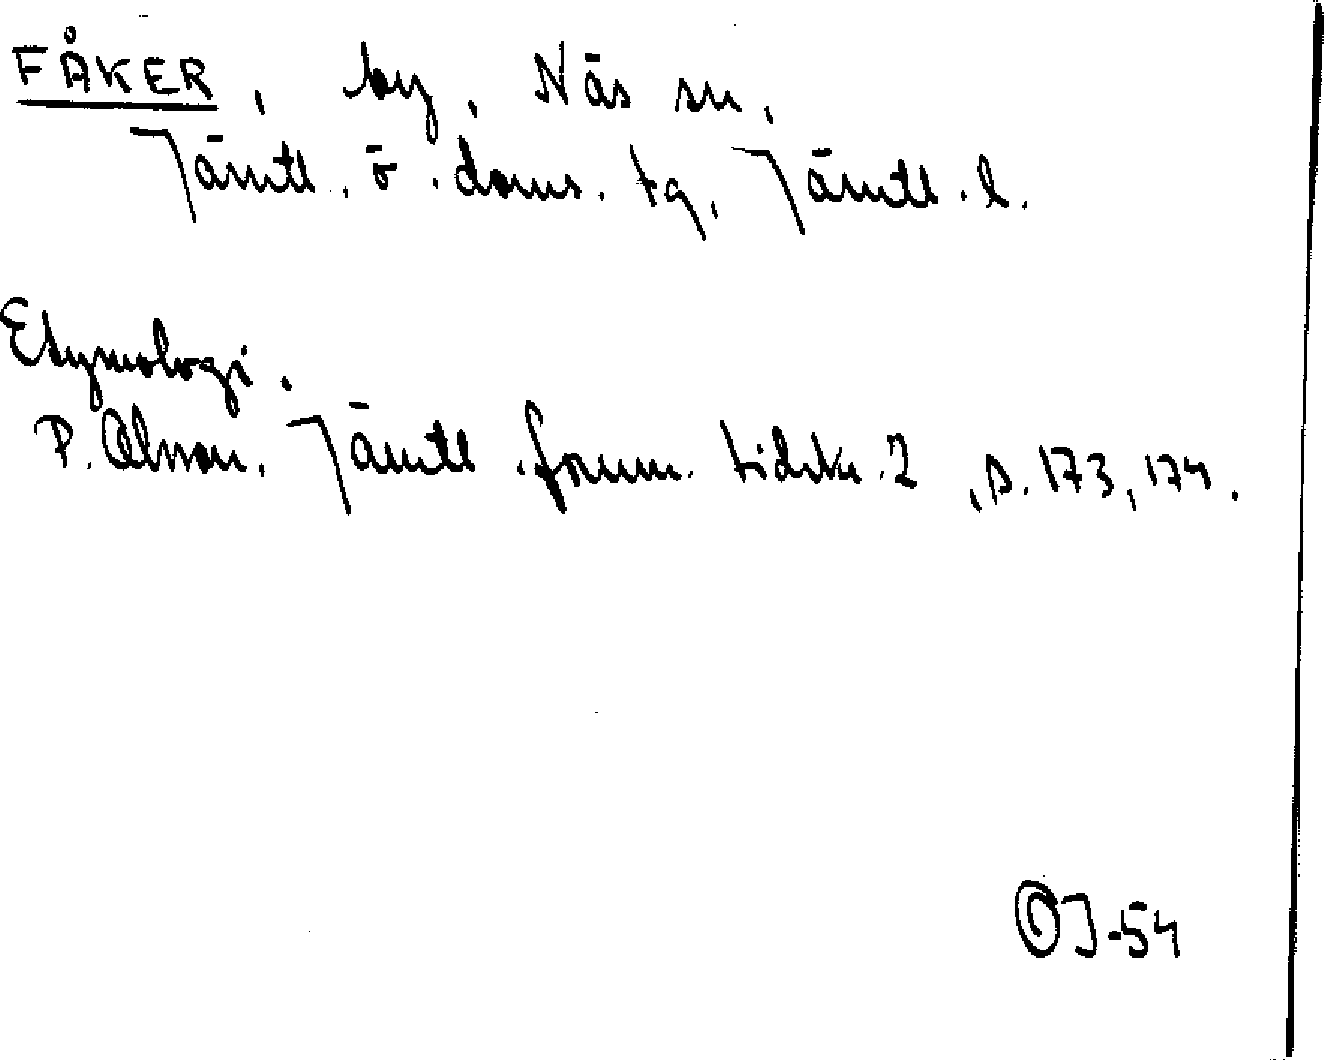 FÅKER, by, Näs sn,
Jämtl. ö. doms. tg, Jämtl. l.
Etymologi.
P. Olsson, Jämtl. fornm. tidskr. 2, s. 173, 174.
OJ-54